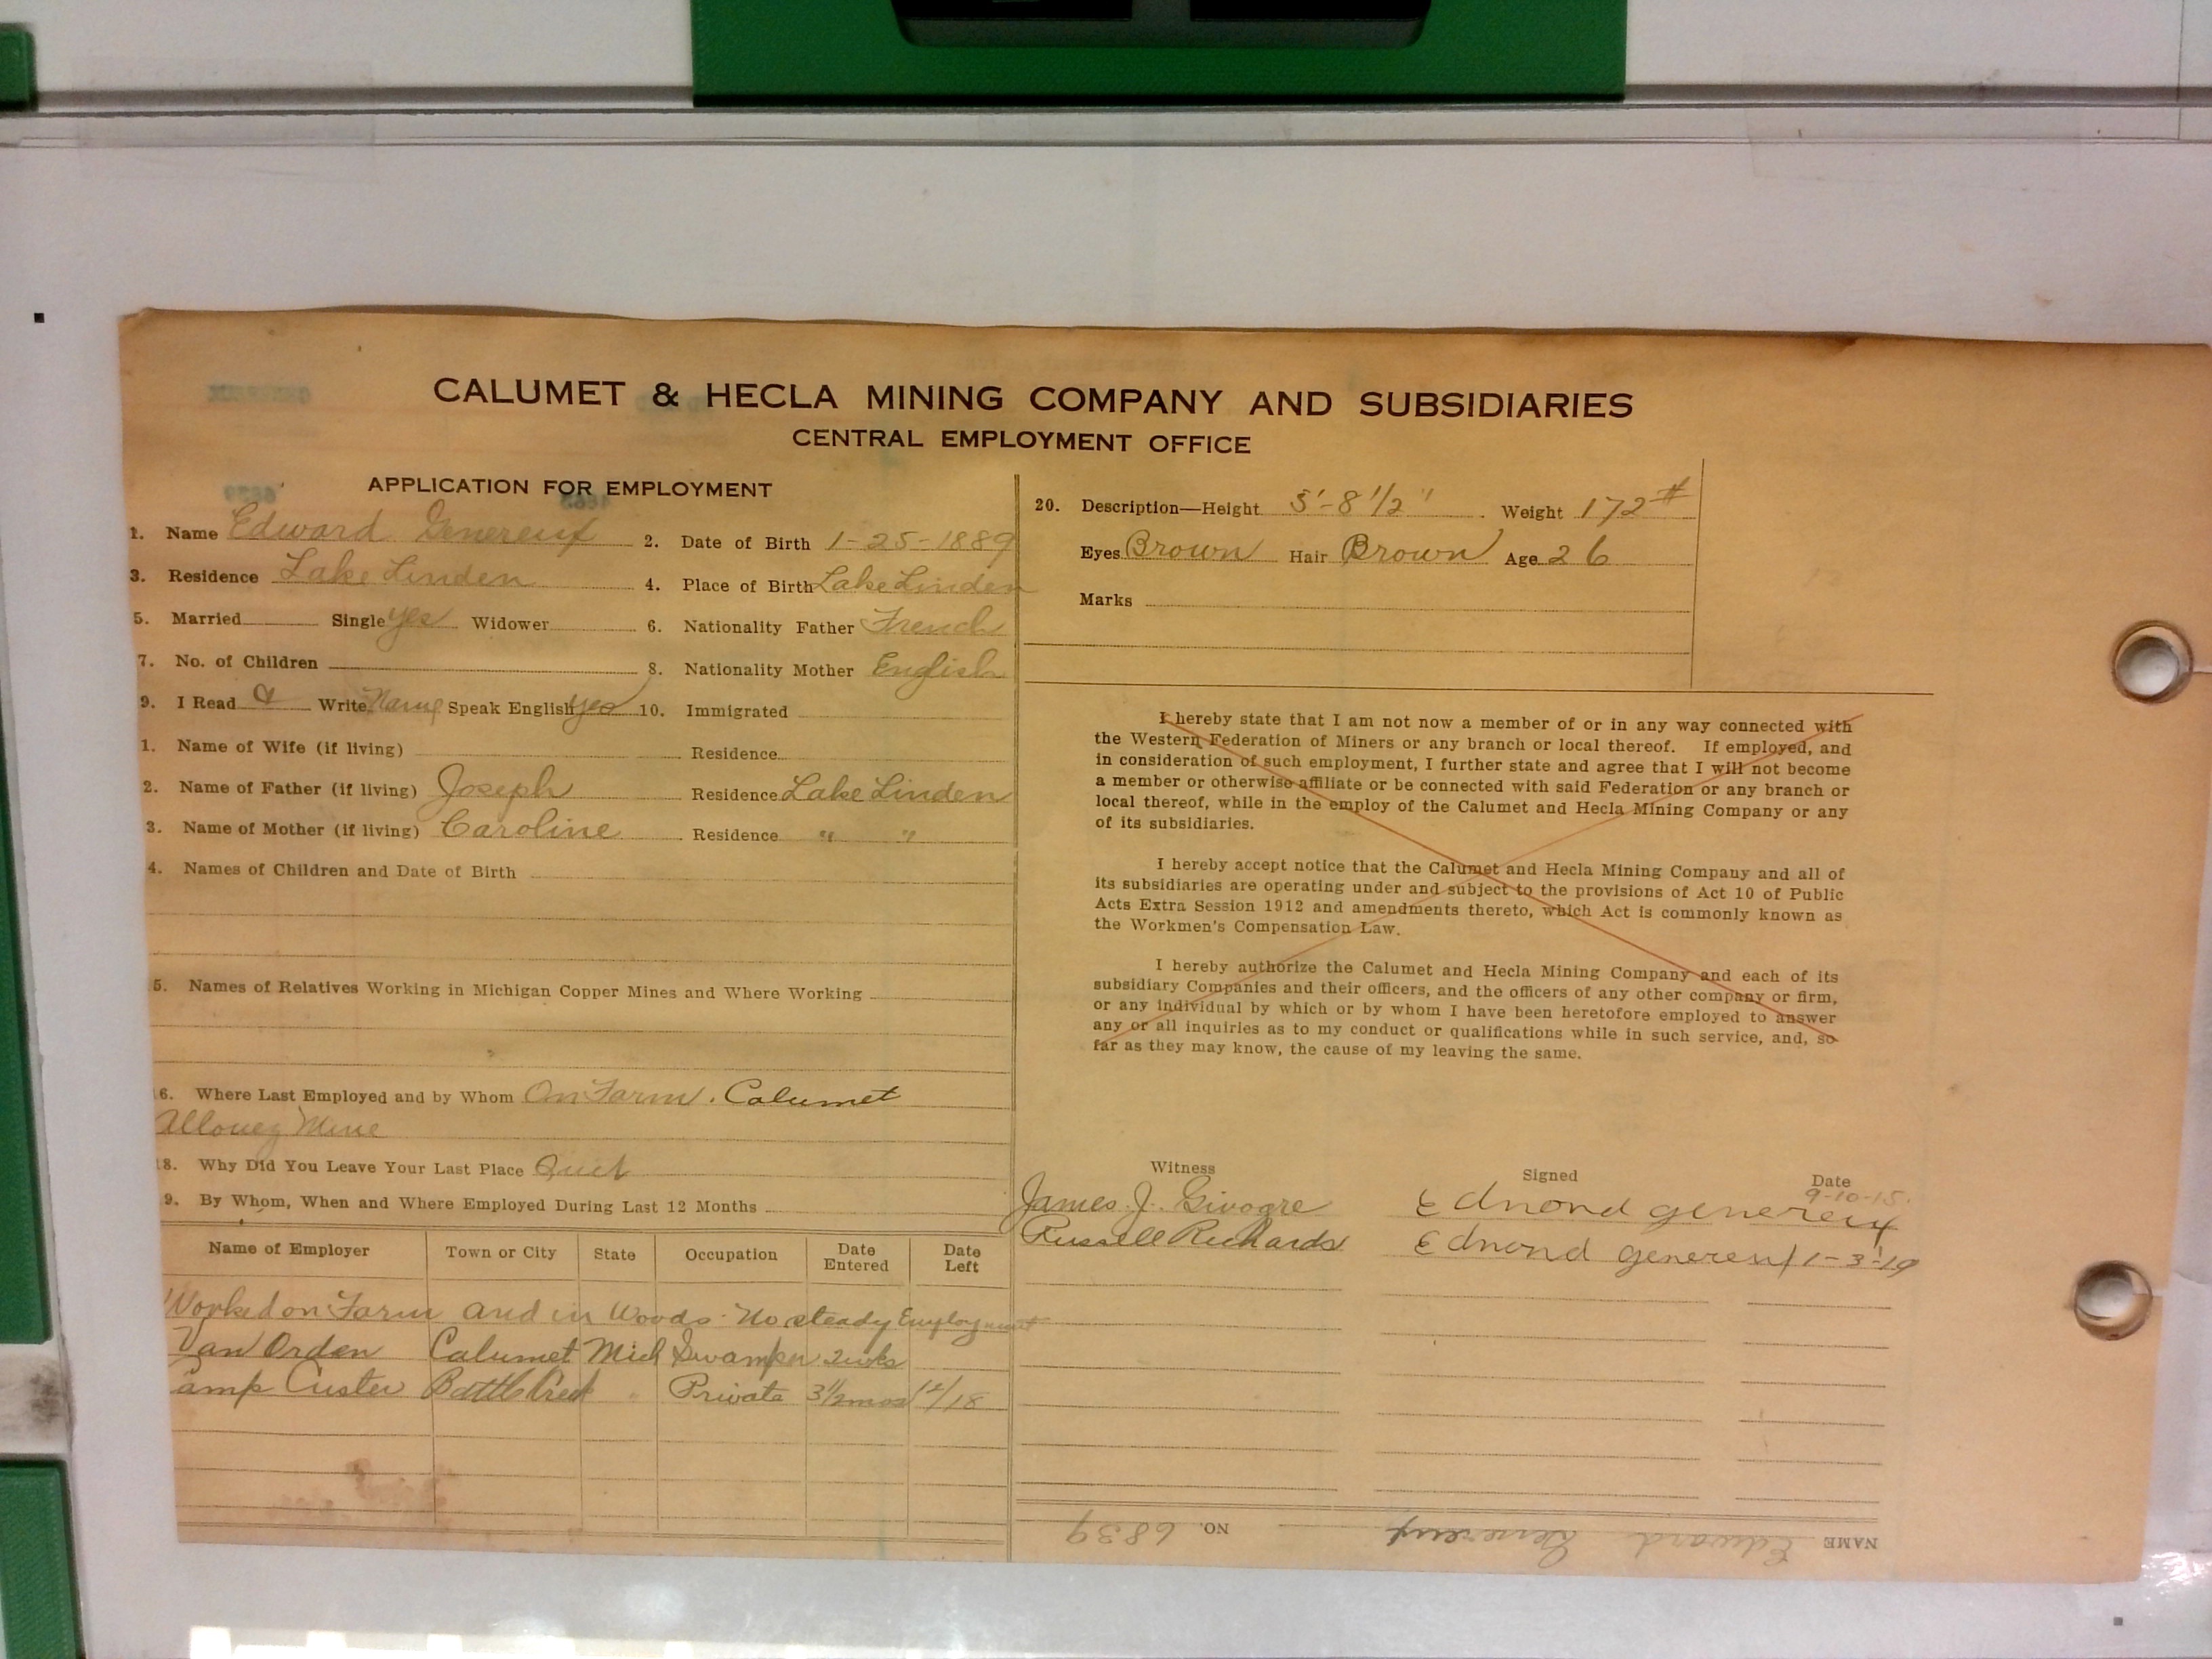 CALUMET & HECLA MINING COMPANY AND SUBSIDIARIES
CENTRAL EMPLOYMENT OFFICE
APPLICATION FOR EMPLOYMENT
1. Name Edward Genereux 2. Date of Birth 1-25-1889
3. Residence Lake Linden 4. Place of Birth Lake Linden
5. Married Single yes Widower 6. Nationality Father French
7. No. of Children 8. Nationality Mother English
9. I Read & Write Name Speak English yes 10. Immigrated
1. Name of Wife (if living) Residence
2. Name of Father (if living) Joseph Residence Lake Linden
3. Name of Mother (if living) Caroline Residence " "
4. Names of Children and Date of Birth
5. Names of Relatives Working in Michigan Copper Mines and Where Working
16. Where Last Employed and by Whom On Farm. Calumet
Allouez Mine
18. Why Did You Leave Your Last Place Quit
9. By Whom, When and Where Employed During Last 12 Months
Name of Employer Town or City State Occupation Date Entered Date Left
Worked on Farm and in Woods - No steady Employment
Van Orden Calumet Mich Swamper 2 wks
Camp Custer Battle Creek " Private 3 1/2 mos 12/18
20. Description—Height 5'-8 1/2" Weight 172 #
Eyes Brown Hair Brown Age 26
Marks
I hereby state that I am not now a member of or in any way connected with
the Western Federation of Miners or any branch or local thereof. If employed, and
in consideration of such employment, I further state and agree that I will not become
a member or otherwise affiliate or be connected with said Federation or any branch or
local thereof, while in the employ of the Calumet and Hecla Mining Company or any
of its subsidiaries.
I hereby accept notice that the Calumet and Hecla Mining Company and all of
its subsidiaries are operating under and subject to the provisions of Act 10 of Public
Acts Extra Session 1912 and amendments thereto, which Act is commonly known as
the Workmen's Compensation Law.
I hereby authorize the Calumet and Hecla Mining Company and each of its
subsidiary Companies and their officers, and the officers of any other company or firm,
or any individual by which or by whom I have been heretofore employed to answer
any or all inquiries as to my conduct or qualifications while in such service, and, so
far as they may know, the cause of my leaving the same.
Witness Signed Date
James J. Givogre Ednond genereux 9-10-15.
Russell Richards Ednond genereux 1-3-19
NAME Edward Genereux NO. 6839